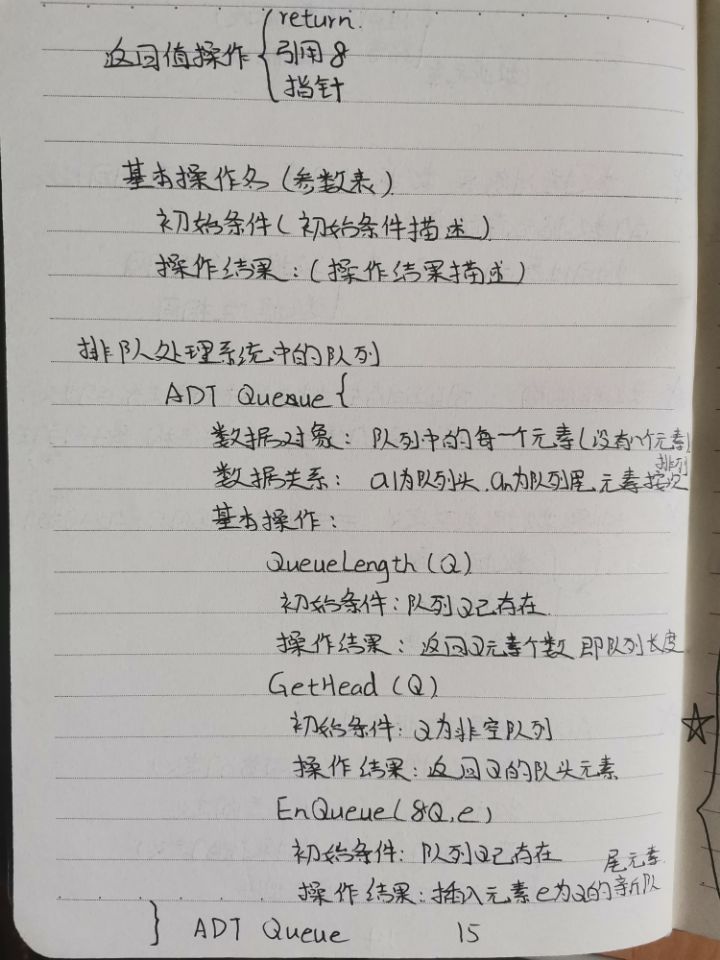 返回值操作 { return.
引用&
指针
基本操作名(参数表)
初始条件(初始条件描述)
操作结果:(操作结果描述)
排队处理系统中的队列
ADT Queue {
数据对象: 队列中的每一个元素(设有n个元素)
数据关系: a1为队列头.an为队列尾 元素按次
排列
基本操作:
QueueLength(Q)
初始条件:队列Q已存在
操作结果: 返回Q元素个数 即队列长度
GetHead(Q)
初始条件: Q为非空队列
操作结果:返回Q的队头元素
EnQueue(&Q,e)
初始条件: 队列Q已存在
操作结果:插入元素e为Q的新队
尾元素
} ADT Queue 15